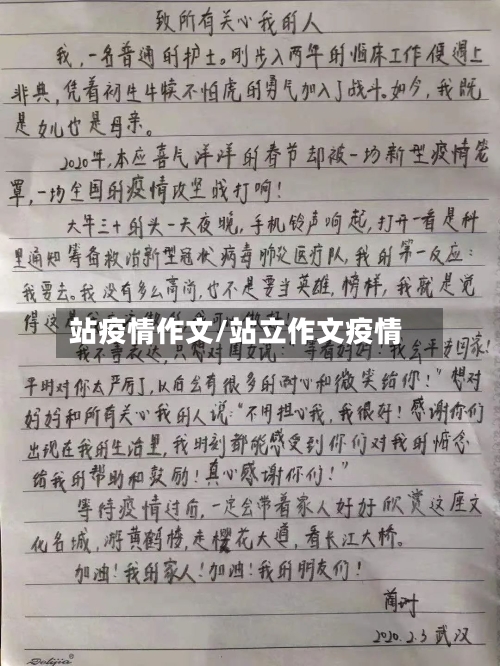 致所有关心我的人
我,一名普通的护士。刚步入两年的临床工作便遇上
非典,凭着初生牛犊不怕虎的勇气加入了战斗。如今,我既
是女儿也是母亲。
2020年,本应喜气洋洋的春节却被一场新型疫情笼
罩,一场全国的疫情攻坚战打响!
大年三十的头一天夜晚,手机铃声响起,打开一看是科
里通知筹备救治新型冠状病毒肺炎医疗队,我的第一反应:
我要去。我没有多么高尚,也不是要当英雄,榜样,我就是觉
得这是
站疫情作文/站立作文疫情
我不善表达,只它对闺女说:"等着妈妈!我会平安回家!
平时对你太严厉了,以后会有很多的耐心和微笑给你!"想对
妈妈和所有关心我的人说:"不用担心我,我很好!感谢你们
出现在我的生活里,我时刻都能感受到你们对我的惦念
给我的帮助和鼓励!真心感谢你们!"
等待疫情过后,一定会带着家人好好欣赏这座文
化名城,游黄鹤楼,走樱花大道,看长江大桥。
加油!我的家人!加油!我的朋友们!
2020.2.3 武汉